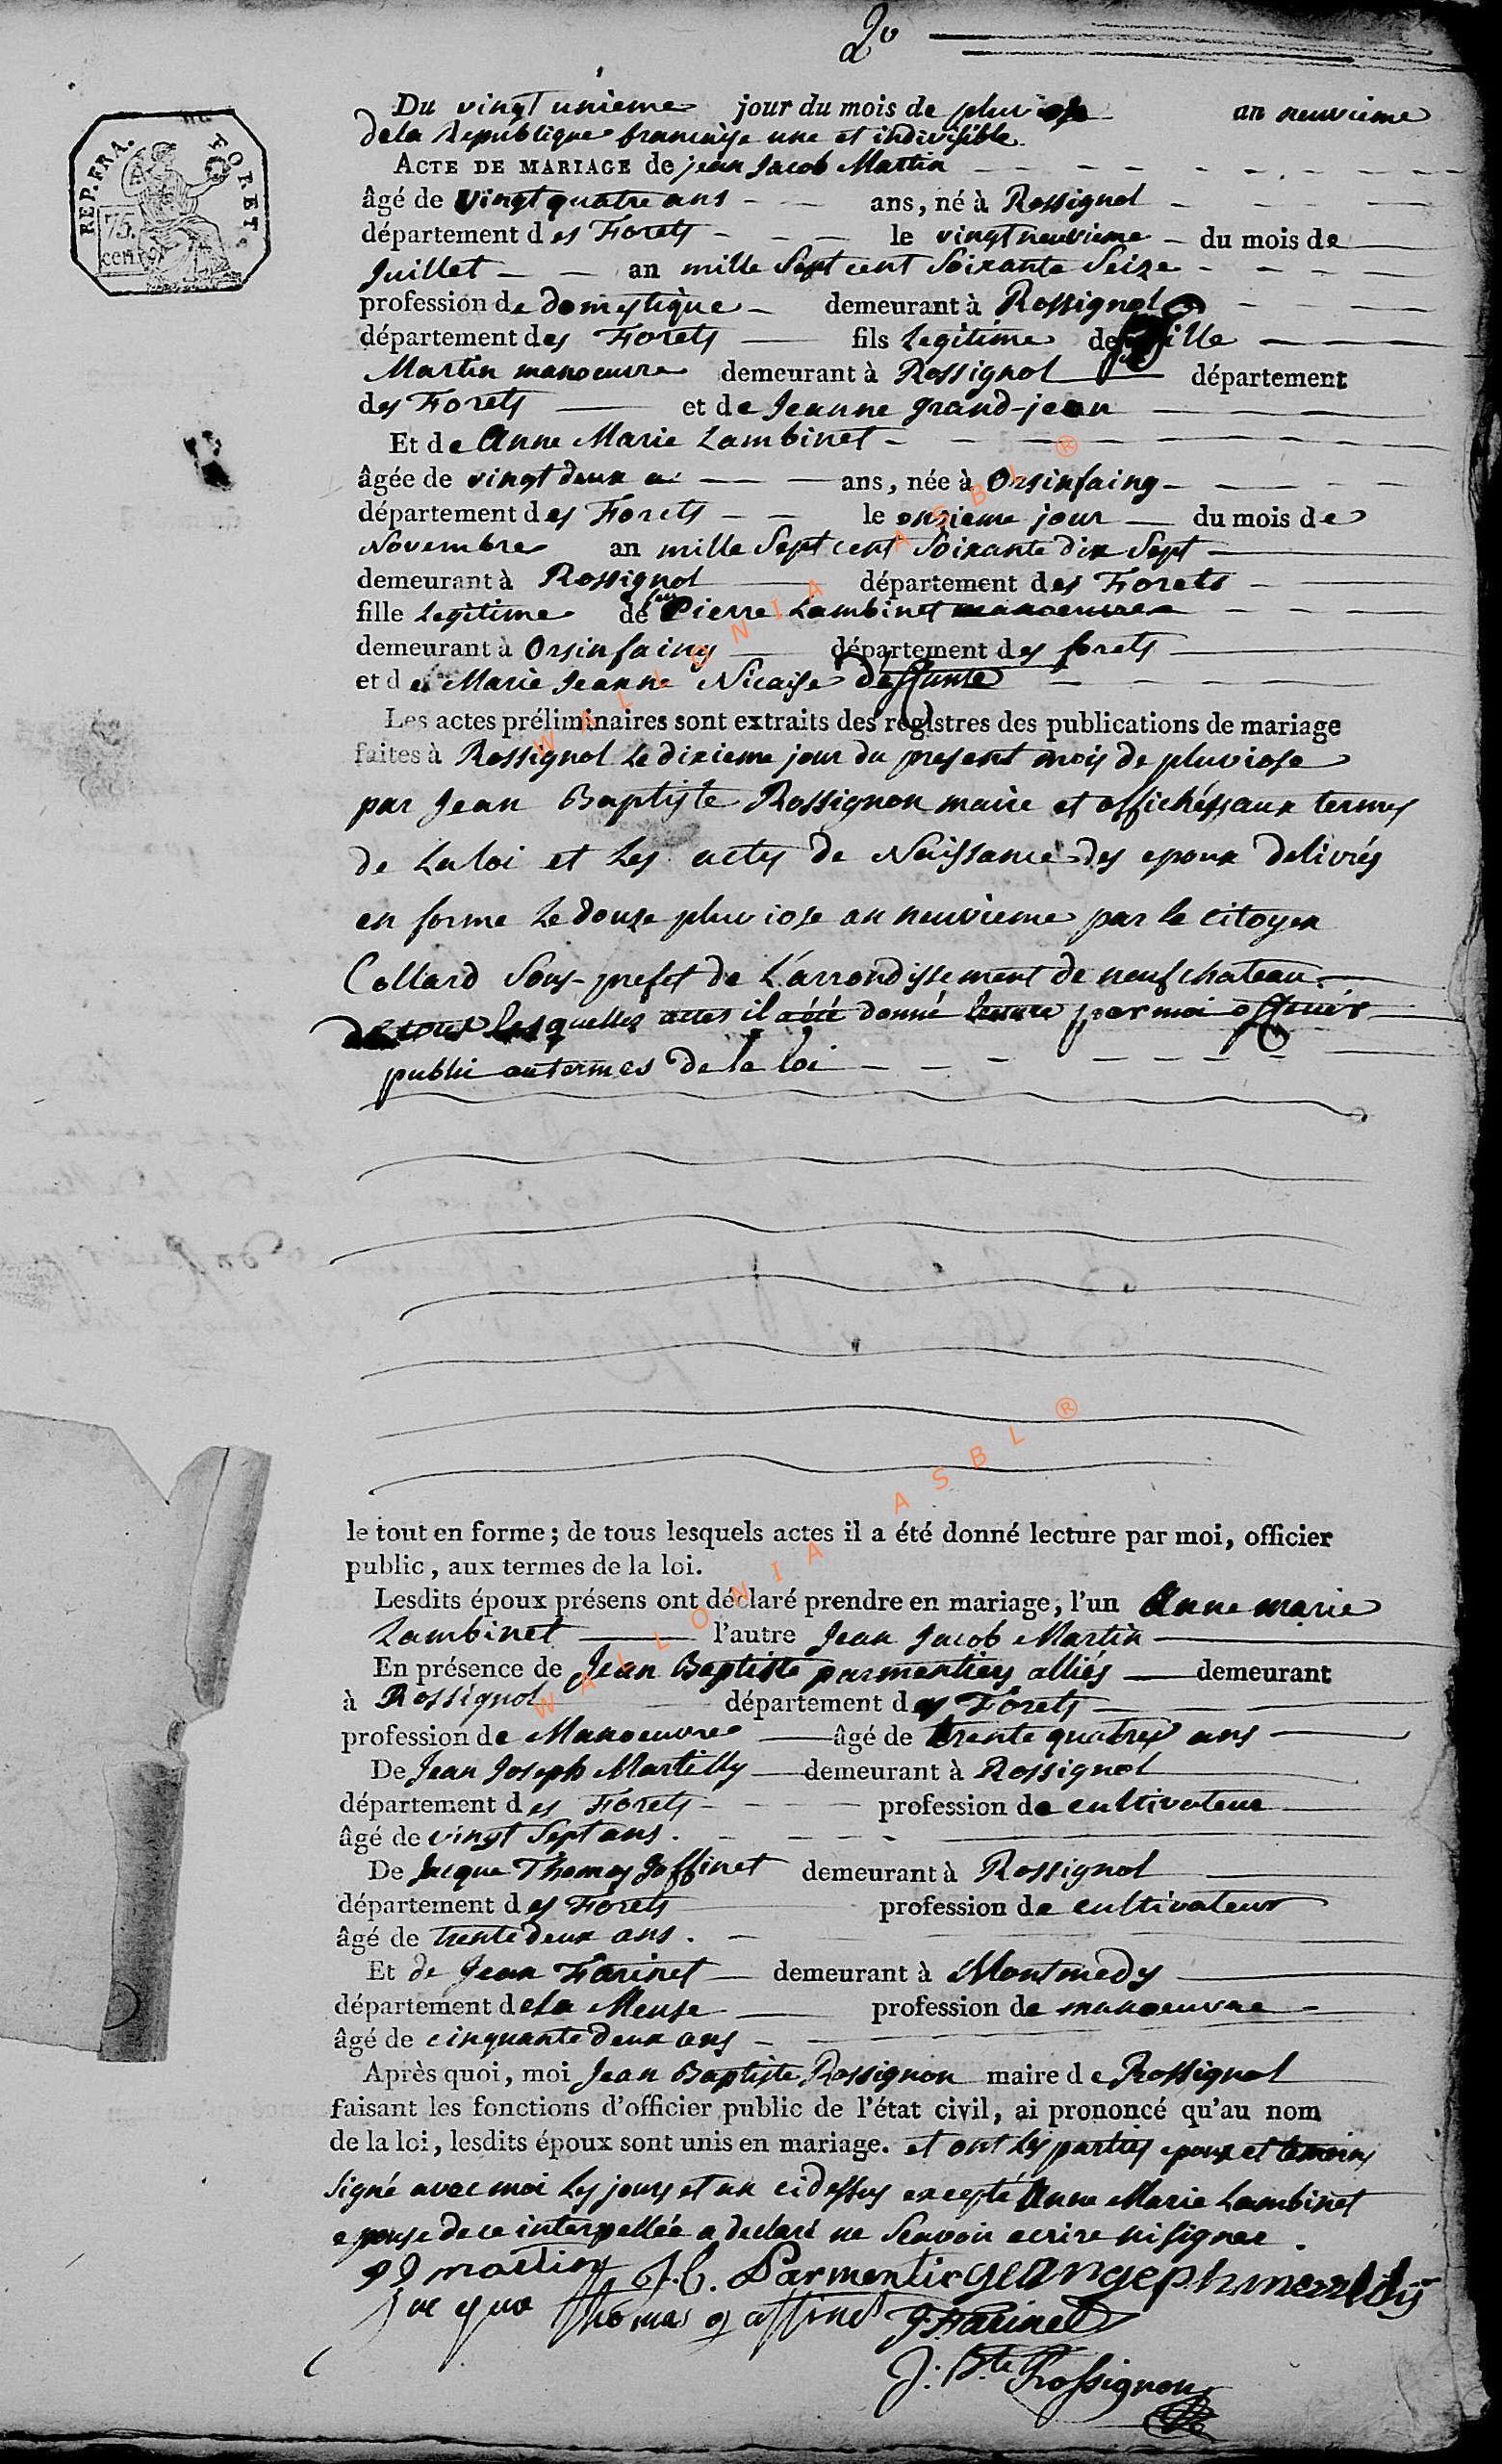 2o
REP. FRA. FORETS.
75. cent.
Du vingt unieme jour du mois de pluviose an neuvieme
de la Republique francaise une et indivisible.
ACTE DE MARIAGE de jean Jacob Martin
âgé de vingt quatre ans ans, né à Rossignol
département des Forets le vingt neuvieme du mois de
Juillet an mille Sept cent Soixante Seize
profession de domestique demeurant à Rossignol
département des Forets fils legitime de Gille
Martin manoeuvre demeurant à Rossignol département
des Forets et de Jeanne grand-jean
Et de Anne Marie Lambinet
âgée de vingt deux ans, née à Orsinfaing
département des Forets le onzieme jour du mois de
Novembre an mille Sept cent Soixante dix Sept
demeurant à Rossignol département des Forets
fille legitime de feu Pierre Lambinet manoeuvre
demeurant à Orsinfaing département des forets
et de Marie Jeanne Nicaise deffunte
Les actes préliminaires sont extraits des registres des publications de mariage
faites à Rossignol Le dixieme jour du present mois de pluviose
par Jean Baptiste Rossignon maire et affichés aux termes
de La loi et Les actes de Naissance des epoux delivrés
en forme Le douze pluviose an neuvieme par le citoyen
Collard Sous-prefet de L'arrondissement de neufchateau.
de tous lesquelles actes il a été donné lecture par moi officier
public au termes de la loi
le tout en forme ; de tous lesquels actes il a été donné lecture par moi, officier
public, aux termes de la loi.
Lesdits époux présens ont déclaré prendre en mariage, l'un Anne marie
Lambinet l'autre Jean Jacob Martin
En présence de Jean Baptiste parmentiers alliés demeurant
à Rossignol département des Forets
profession de Manoeuvre âgé de trente quatres ans
De Jean Joseph Martilly demeurant à Rossignol
département des Forets profession de cultivateur
âgé de vingt Sept ans.
De Jacque Thomas Goffinet demeurant à Rossignol
département des Forets profession de cultivateur
âgé de trente deux ans.
Et de Jean Farinet demeurant à Montmedy
département de la Meuse profession de manoeuvre
âgé de cinquante deux ans
Après quoi, moi Jean Baptiste Rossignon maire de Rossignol
faisant les fonctions d'officier public de l'état civil, ai prononcé qu'au nom
de la loi, lesdits époux sont unis en mariage. et ont les parties epoux et temoins
signé avec moi Les jours et an cidessus excepté Anne Marie Lambinet
epouse de ce interpellée a declaré ne Scavoir ecrire ni signer.
JJ martin J.b. Parmentier
Jacque thomas goffinet J Farinet
J: Bte Rossignon
WALLONIA ASBL ®
WALLONIA ASBL ®